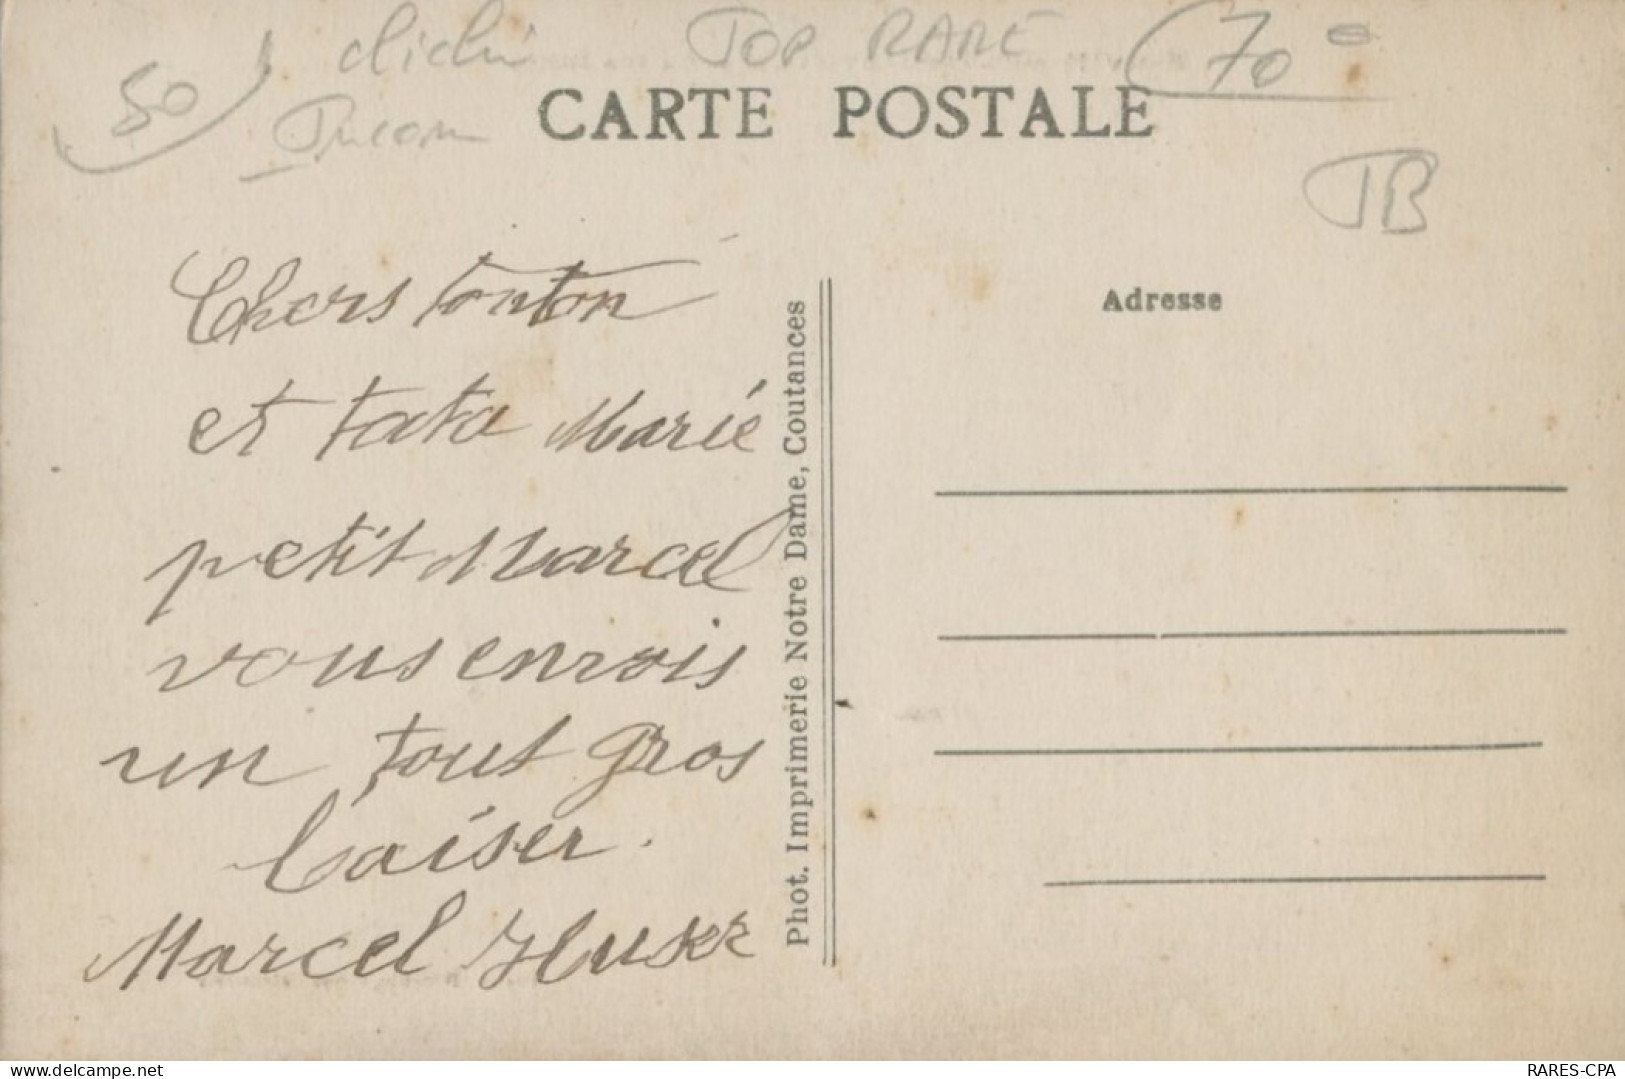 50 cliché TOP RARE 70
CARTE POSTALE
TB
Chers tonton
et tata Marie
petit Marcel
vous envois
un tout gros
baiser.
Marcel
Phot. Imprimerie Notre Dame, Coutances
Adresse
www.delcampe.net
RARES-CPA